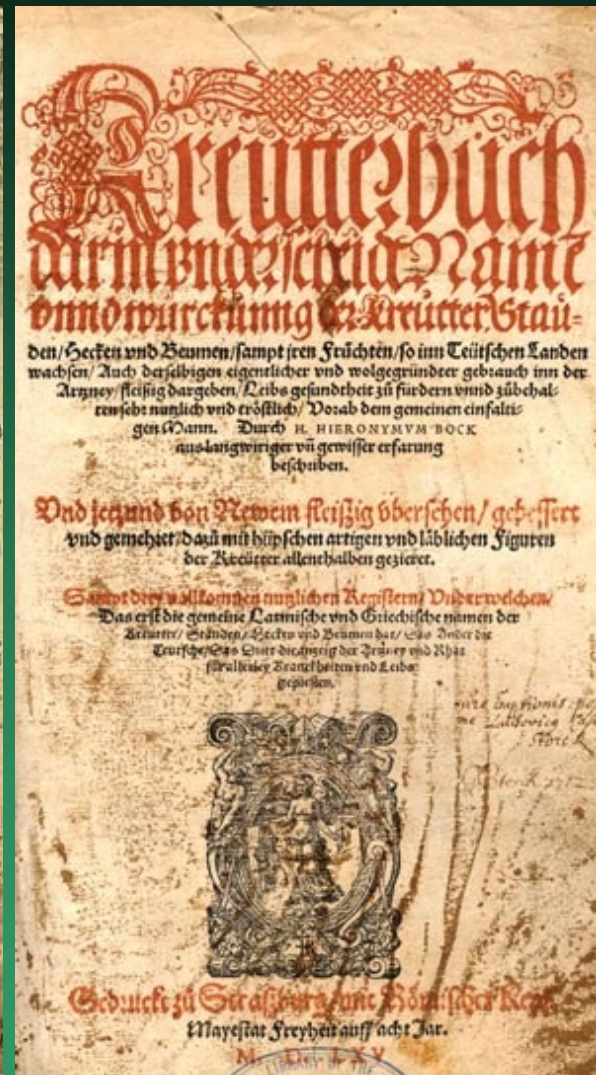 Kreütterbuch
darin underscheid Namē
vnnd würckunng der Kreütter, Stau-
den/Hecken vnd Beumen/sampt jren Früchten/so inn Teütschen Landen
wachsen/ Auch derselbigen eigentlicher vnd wolgegründter gebrauch inn der
Artzney/fleißig dargeben/Leibs gesundtheit zů fürdern vnnd zůbehal-
ten sehr nutzlich vnd tröstlich/ Vorab dem gemeinen einfalti-
gen Mann. Durch H. HIERONYMVM BOCK
aus langwiriger vñ gewisser erfarung
beschriben.
Vnd jetzund von Newem fleißig übersehen/ gebessert
vnd gemehret/dazů mit hüpschen artigen vnd läblichen Figuren
der Kreütter allenthalben gezieret.
Sampt drey vollkomnen nutzlichen Registern/ Vnder welchen/
Das erst die gemeine Latinische vnd Griechische namen der
Kreütter/ Stauden/ Hecken vnd Beumen hat/ Das Ander die
Teutsche/Das Dritt die anzeig der Artzney vnd Rhat
für allerley Kranckheiten vnd Leibs
gepresten.
Ludovicq
Storck
Storck
Gedruckt zů Straßburg/mit Römischer Keys.
Mayestat Freyheit auff acht Jar.
M. D. LXV
LIBRARY OF THE